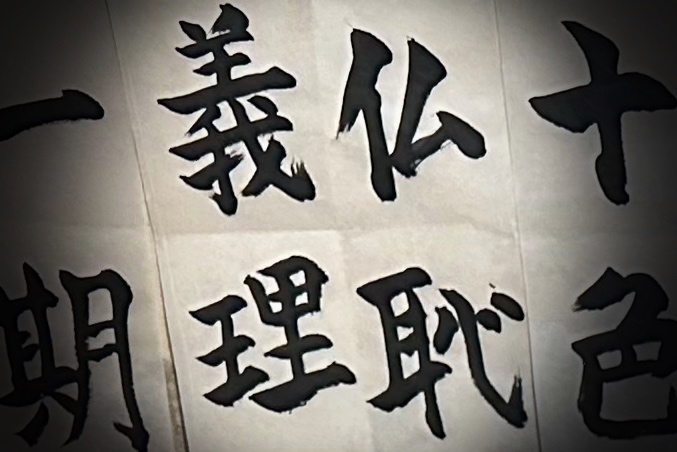 十色
仏恥
義理
一期